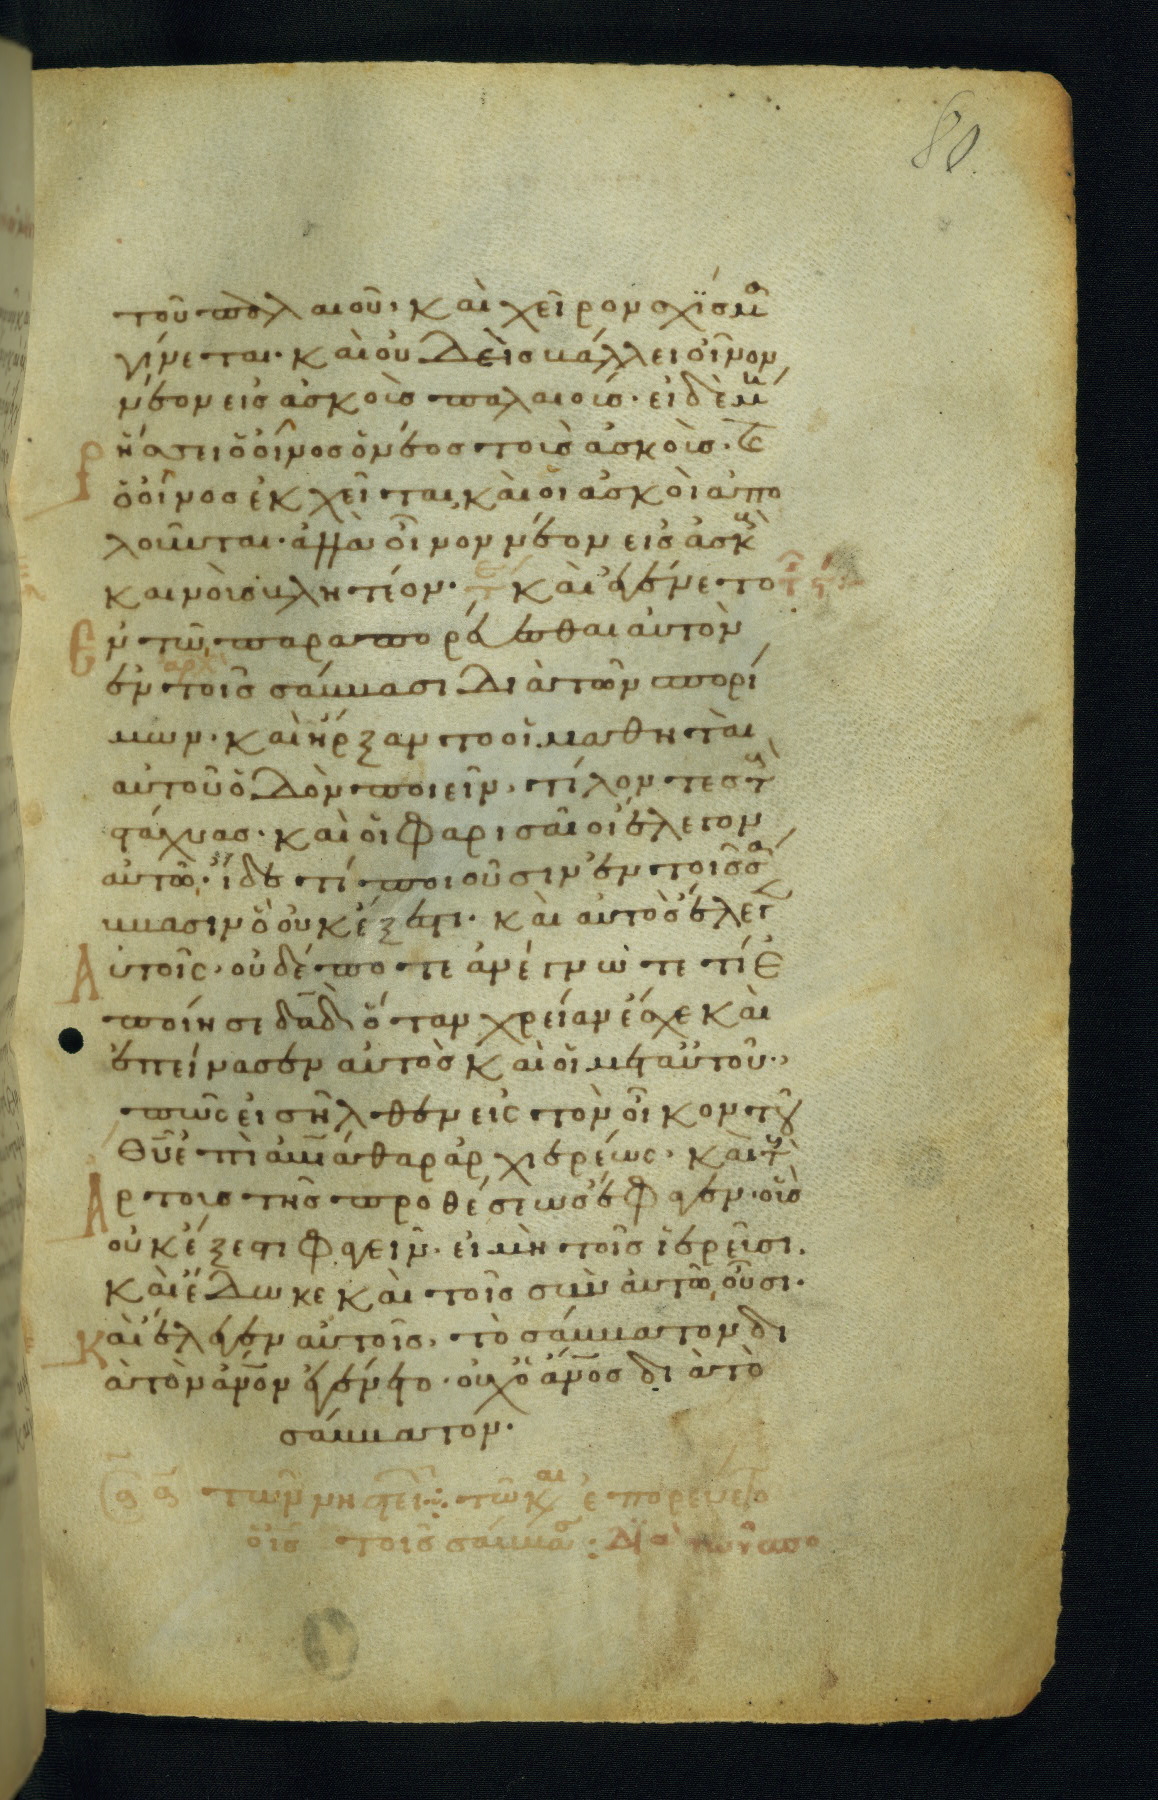 80
τοῦ παλαιοῦ, καὶ χεῖρον σχίσμα
γίνεται· καὶ οὐδεὶς βάλλει οἶνον
νέον εἰς ἀσκοὺς παλαιούς· εἰ δὲ μή
ῥήσσει ὁ οἶνος ὁ νέος τοὺς ἀσκούς· καὶ
ὁ οἶνος ἐκχεῖται, καὶ οἱ ἀσκοὶ ἀπο
λοῦνται· ἀλλὰ οἶνον νέον εἰς ἀσκοὺς
καινοὺς βλητέον· τέ καὶ ἐγένετο
ἐν τῷ παραπορεύεσθαι αὐτὸν
ἀρχ
ἐν τοῖς σάββασι διὰ τῶν σπορί
μων· καὶ ἤρξαντο οἱ μαθηταὶ
αὐτοῦ ὁδὸν ποιεῖν, τίλλοντες τοὺς
στάχυας· καὶ οἱ Φαρισαῖοι ἔλεγον
αὐτῷ· ἴδε τί ποιοῦσιν ἐν τοῖς σά
ββασιν ὃ οὐκ ἔξεστι· καὶ αὐτὸς ἔλεγεν
αὐτοῖς· οὐδέποτε ἀνέγνωτε τί ἐ
ποίησε δαδ ὅταν χρείαν ἔσχε καὶ
ἐπείνασεν αὐτὸς καὶ οἱ μετ αὐτοῦ·
πῶς εἰσῆλθεν εἰς τὸν οἶκον τοῦ
θυ ἐπὶ ἀβιάθαρ ἀρχιερέως· καὶ τοὺς
ἄρτους τῆς προθέσεως ἔφαγεν· οὓς
οὐκ ἔξεστι φαγεῖν· εἰ μὴ τοῖς ἱερεῦσι.
καὶ ἔδωκε καὶ τοῖς σὺν αὐτῷ οὖσι·
καὶ ἔλεγεν αὐτοῖς, τὸ σάββατον δι
ὰ τὸν ἄνον ἐγένετο· οὐχ ὁ ἄνος διὰ τὸ
σάββατον·
τῶν νηστει τῷ καιρ ἐπορεύετο
ὁ ις τοῖς σάββα : διὰ τῶν σπο